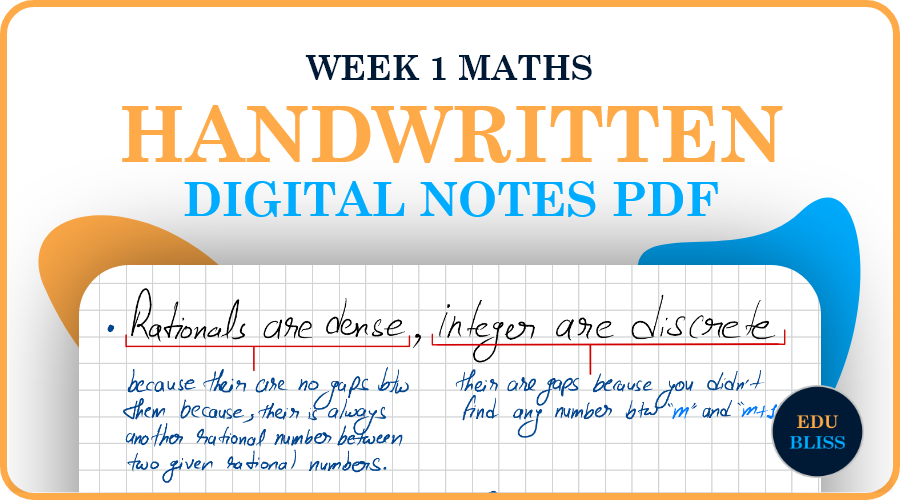 WEEK 1 MATHS
HANDWRITTEN
DIGITAL NOTES PDF
• Rationals are dense, integer are discrete
because their are no gaps btw
them because, their is always
another rational number between
two given rational numbers.
their are gaps because you didn't
find any number btw "m" and "m+1
EDU
BLISS